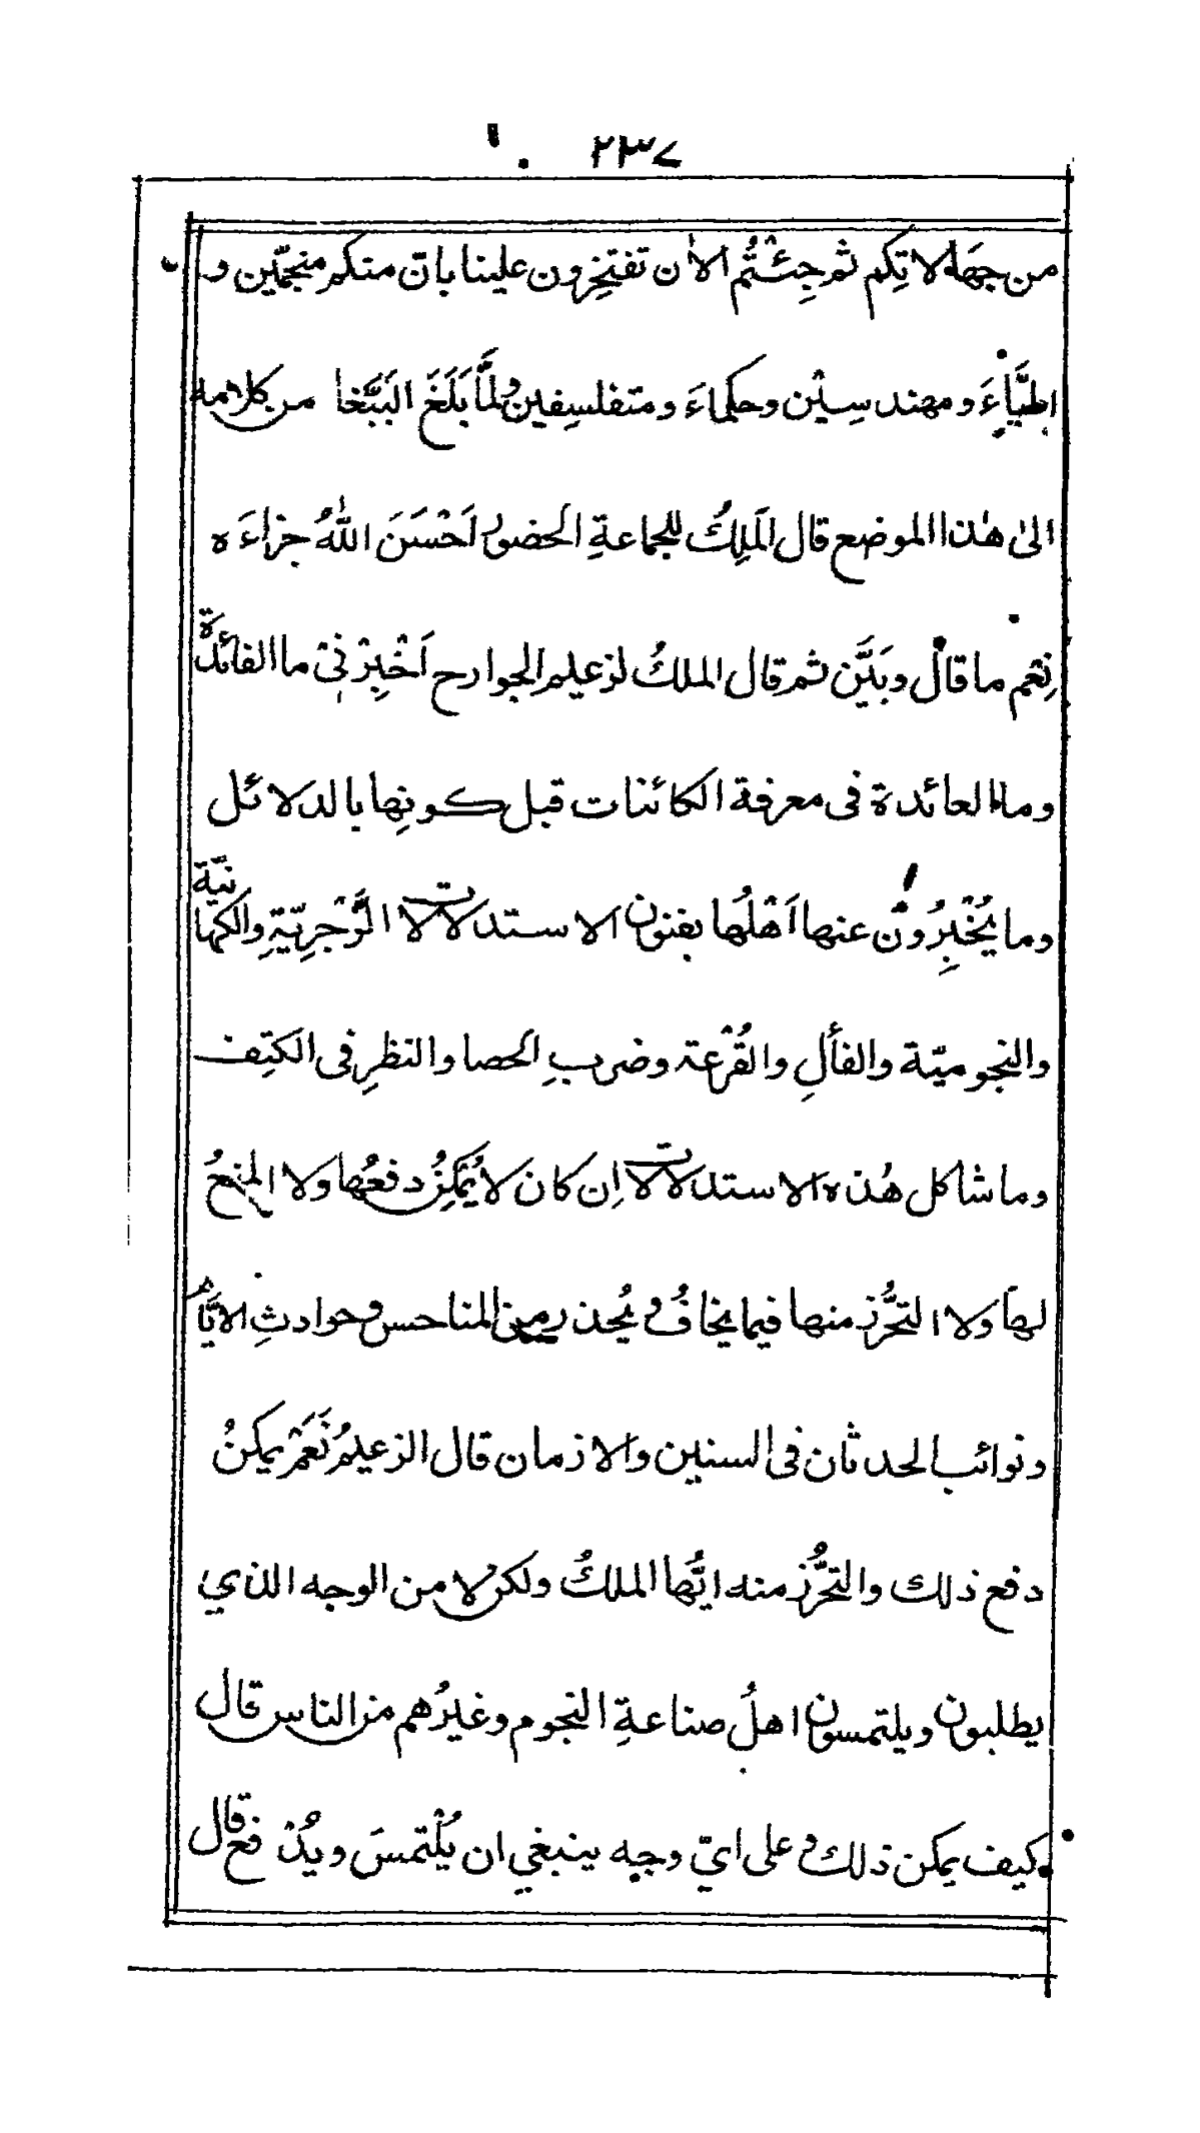 ٢٣٧
من جهالاتكم ثم جِئْتُم الاٰن تفتخِرون علينا بانّ منكم منجّمين و
اطبَّاءَ ومهندسِيْن وحكماءَ ومتفلسِفين ولمَّا بَلَغَ البَبَّغا من كلامه
الىٰ هٰذا الموضع قال المَلِكُ للجماعةِ الحضورُ اَحْسَنَ اللّٰهُ جزاءَه
نِعْم ما قال وبَيَّن ثم قال الملكُ لزعيم الجوارح اَخْبِرْنِىْ ما الفائدةُ
وما العائدة فى معرفة الكائنات قبل كونِها بالدلائل
وما يُخْبِرُون عنها اَهْلُها بفنون الاستدلالات الزَّجْرِيّةِ والكهانيّة
والنجوميّة والفألِ والقُرْعة وضربِ الحصا والنظرِ فى الكتِف
وما شاكل هٰذه الاستدلالات اِن كان لا يُمْكِنُ دفعُها ولا المنعُ
لها ولا التحرُّز منها فيما يخافُ ويُحذر من المناحس وحوادثِ الايَّام
ونوائب الحدثان فى السنين والازمان قال الزعيمُ نَعَمْ يمكنُ
دفع ذلك والتحرُّز منه ايُّها الملكُ ولكن لا من الوجه الذي
يطلبون ويلتمسون اهلُ صناعةِ النجوم وغيرُهم من الناس قال
كيف يمكن ذلك وعلى ايّ وجه ينبغي ان يُلْتمسَ ويُدْفع قال